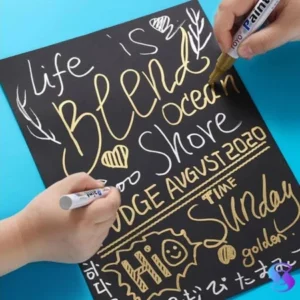 life is
Blend
ocean
Shore
UDGE AVGVST 2020
TIME
Sunday
Hi
golden
Paint
Paint